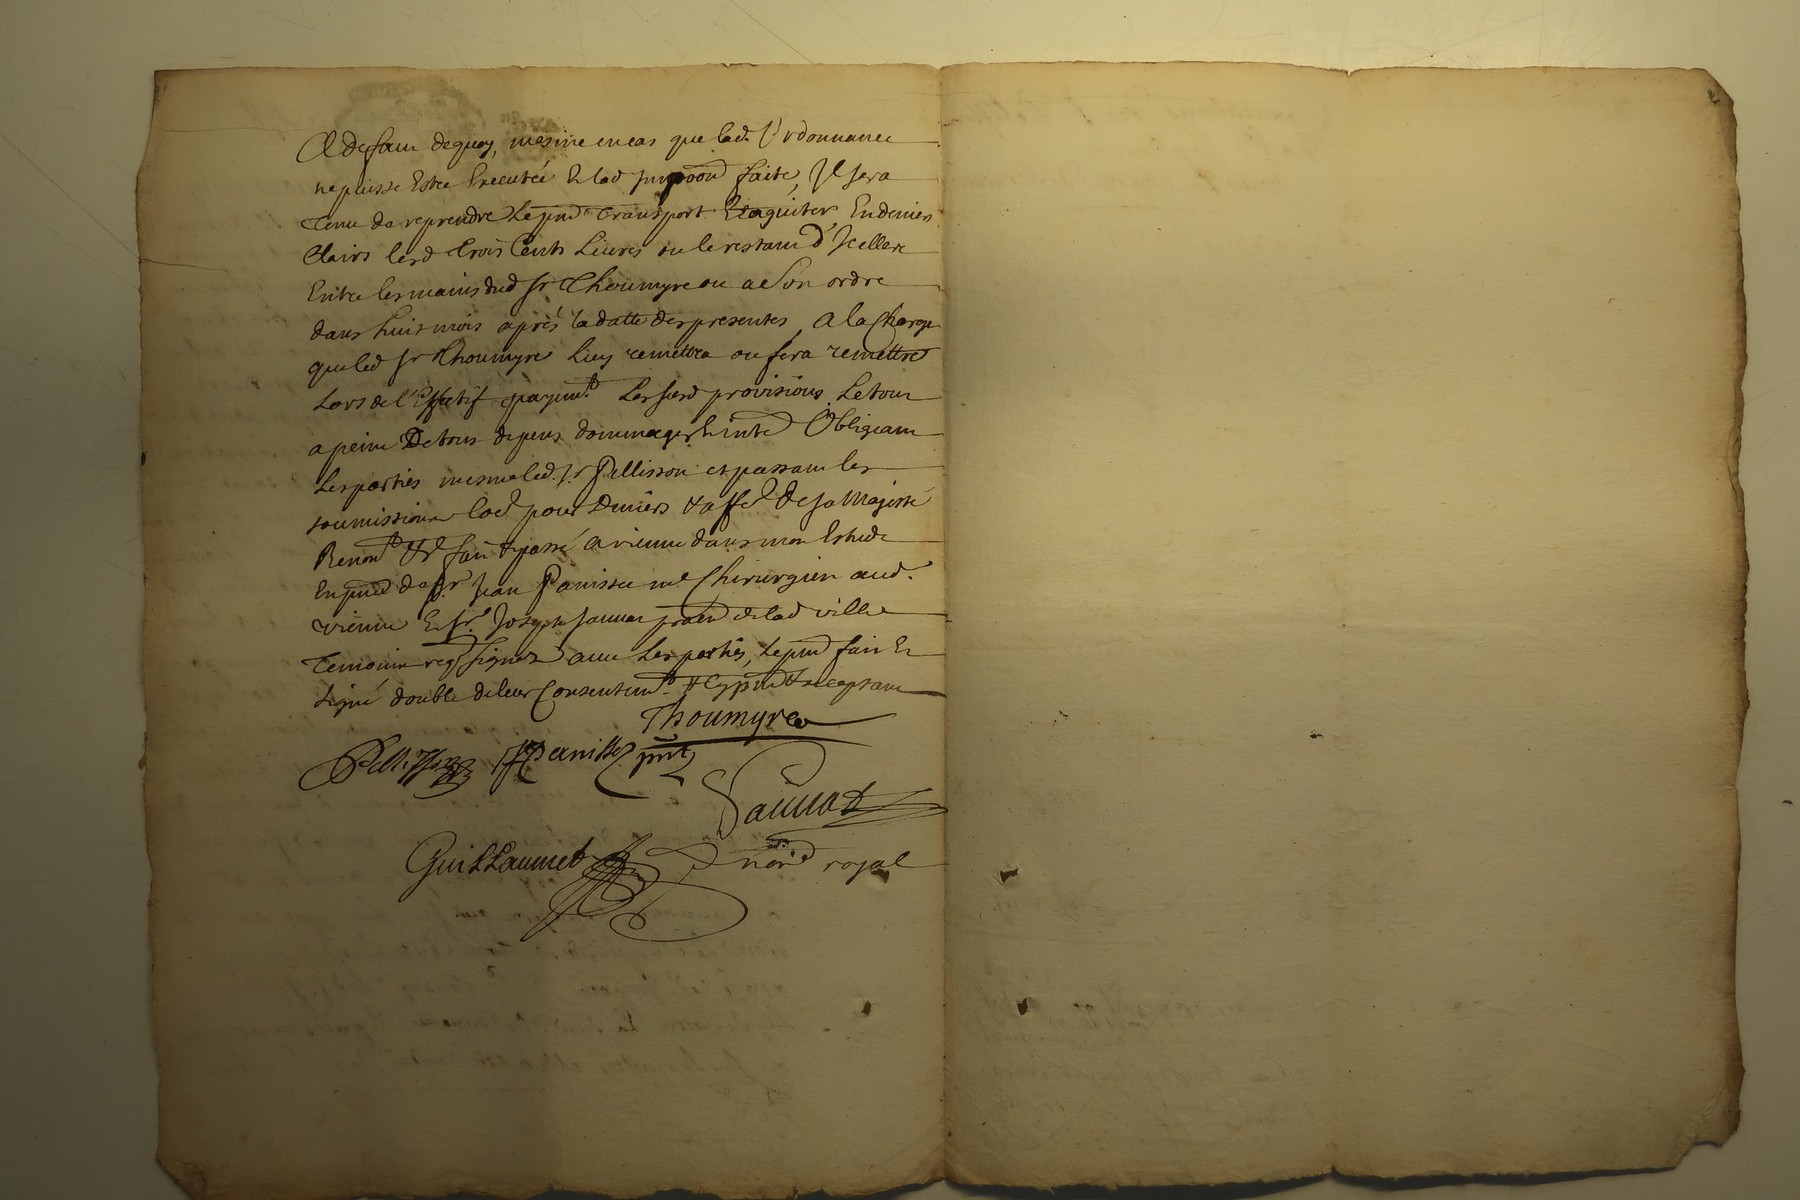 A defaut dequoy, mesme en cas que lad. Ordonnance
ne puisse Estre Executée & lad faite, Il sera
tenu de reprendre le pnt transport Et aquiter En deniers
Clairs lesd trois Cents Livres ou le restant d'Icelles
Entre les mains dud Sr Thoumyre ou a Son ordre
dans huit mois aprés la datte des presentes, a la Charge
que led Sr Thoumyre Luy remettra ou fera remettre
Lors de l'Effectif payemt. Les susd provisions Le tout
a peine De tous depens dommages & intd Obligeant
Les parties mesme led. Sr. Pellisson et passant les
soumissions lad pour Deniers & affes De sa Majesté
Renont & fait & passé a vienne dans mon Estude
En pnce de Sr. Jean Panisse me Chirurgien aud.
vienne & Sr. Joseph Sauna de lad ville
Temoins signez avec les parties, le pnt fait Et
signé double de leur Consentemt.
Thoumyre
Pellisson Panisse pnt
Guillaumet nore royal